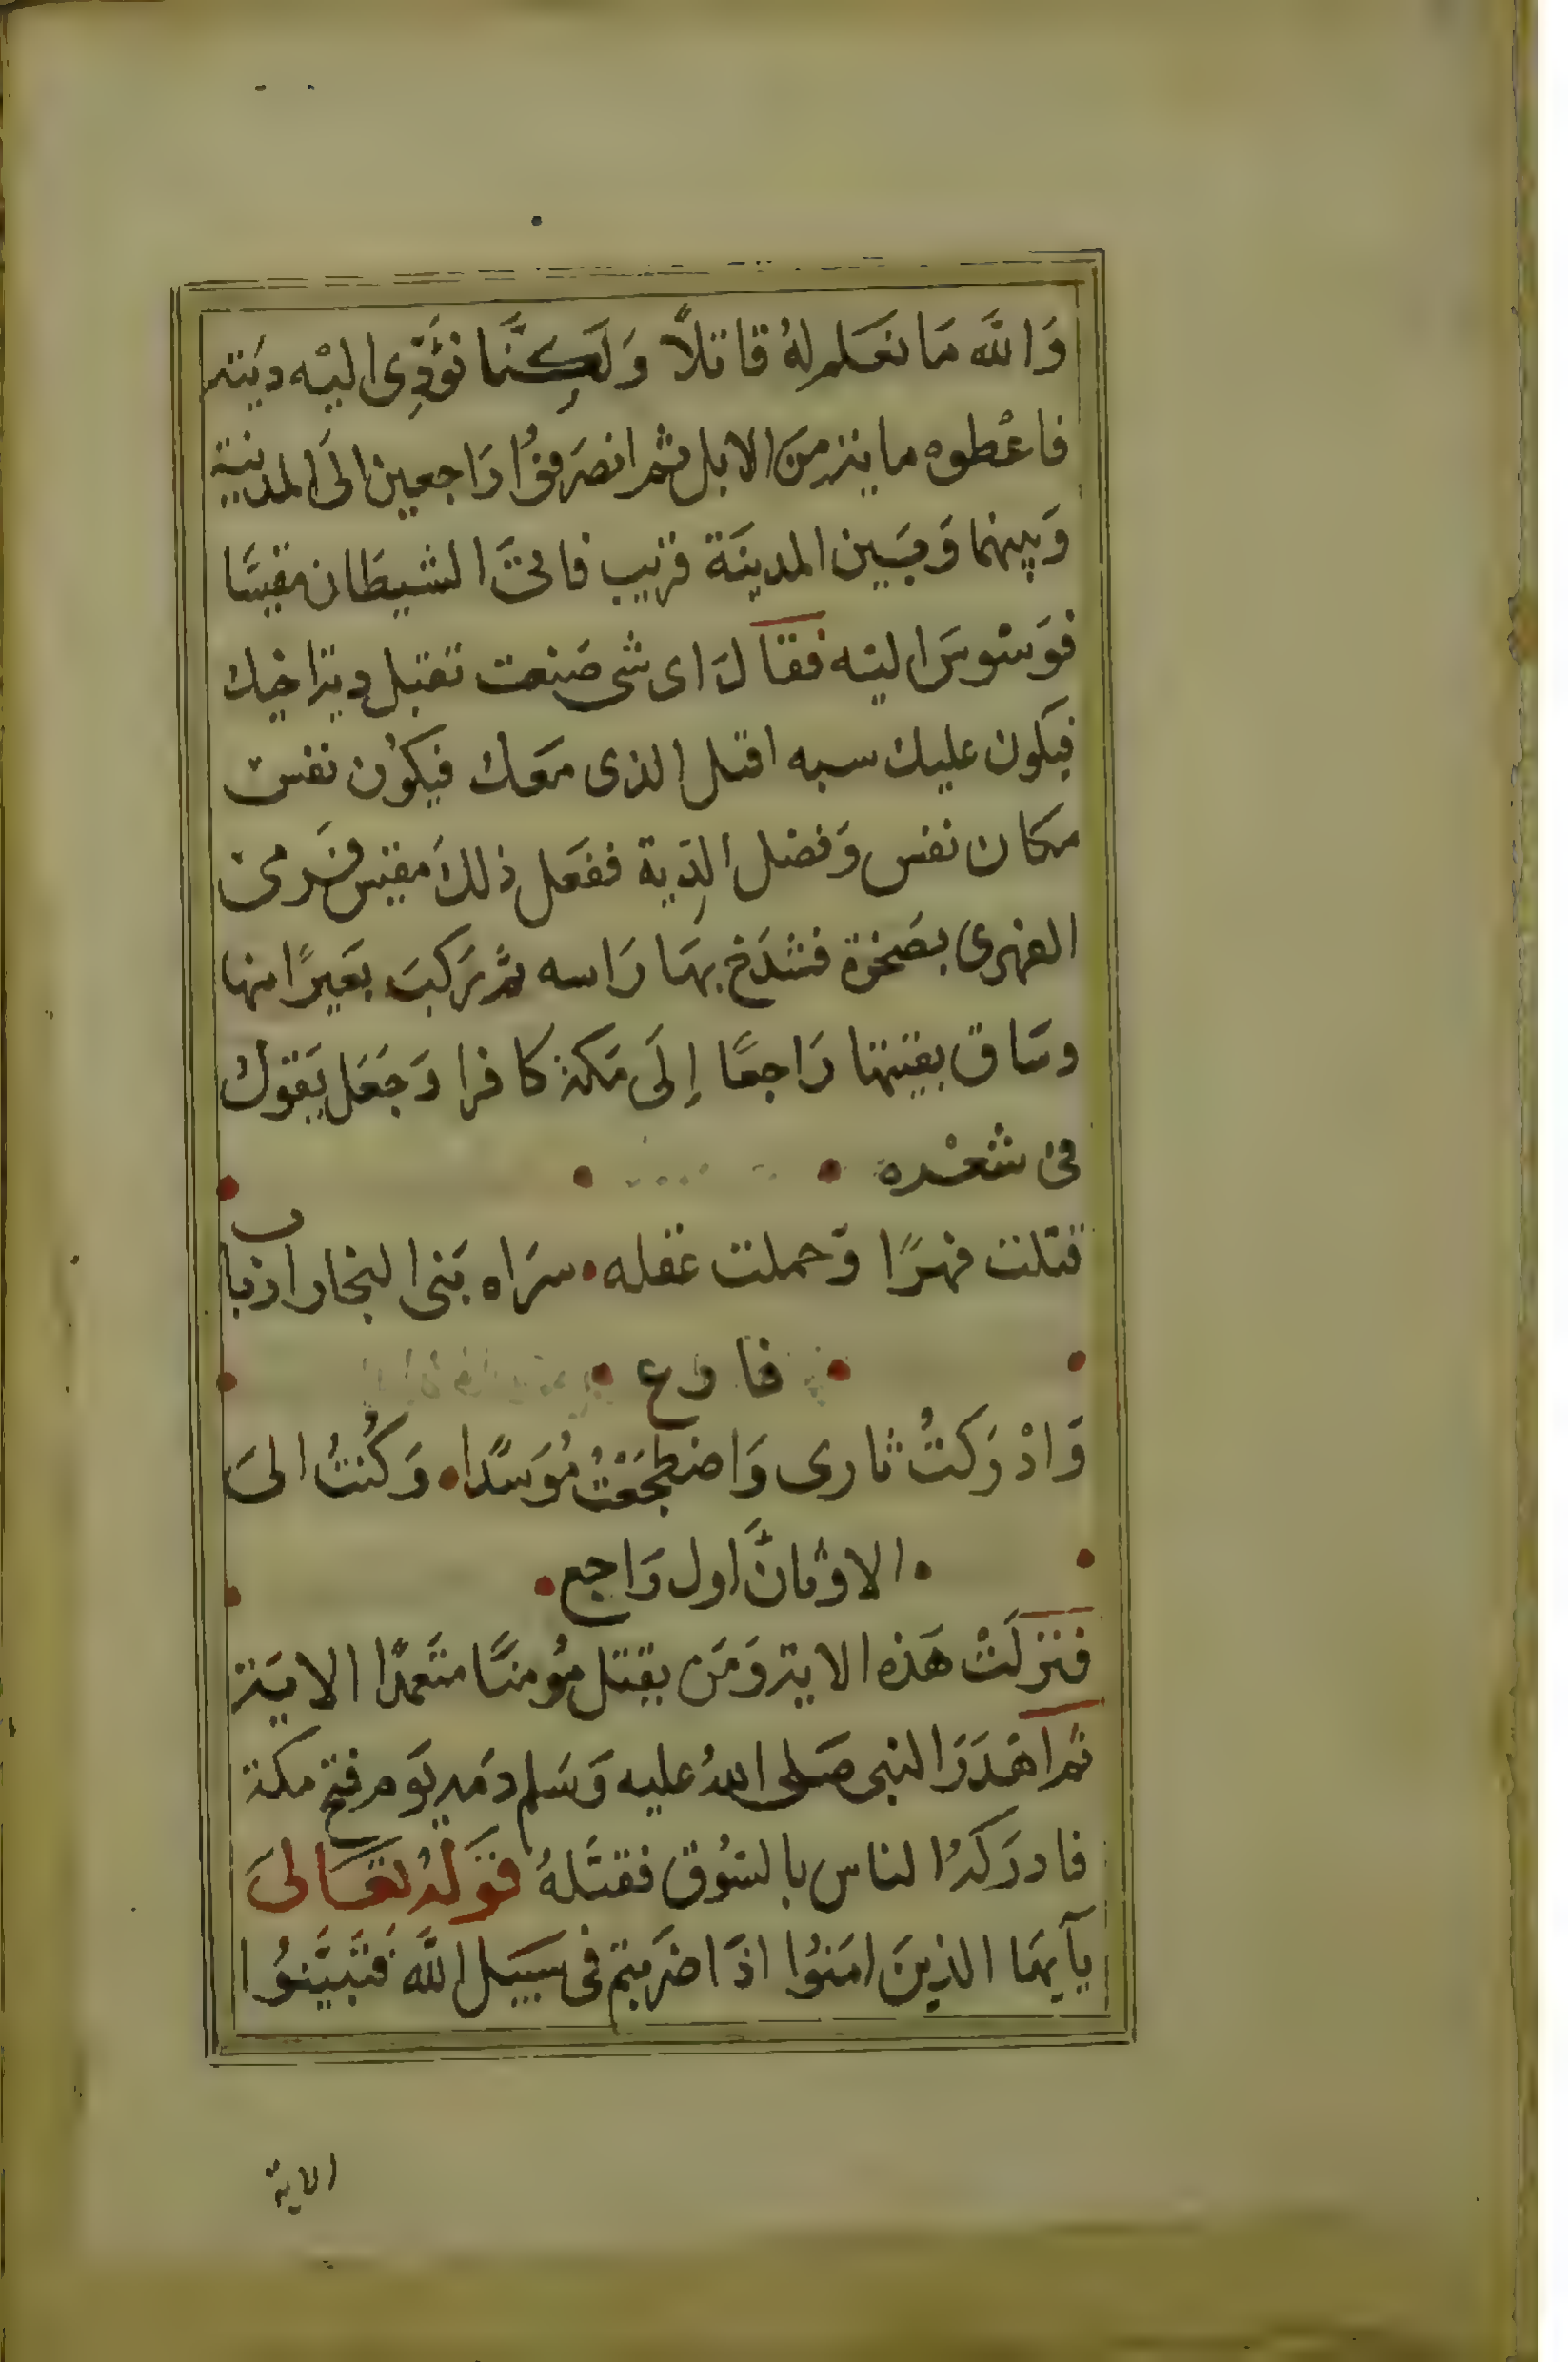 وَاللَّه مَا نَعَلم لهُ قاتلًا وَلَكِنَّا نؤَدِّى اليْه ديَته
فاعْطوه مايته منَ الابل ثم انصَرفوُا رَاجعين الىَ المدينة
وَبينهما وَبَين المدينَة قريب فاتىَ الشيطَان مقيسًا
فوَسْوسَ اليه فقَالَ اى شى صَنعت تقبل دية اخيك
فيكون عليك سبه اقتل الذى معَك فيكوُن نفس
مكان نفس وَفضل الدِّية ففعَل ذلكَ مقيس فرَمىَ
الفهرى بصَخرة فشدَخ بهَا رَاسه ثم رَكبَ بعَيرًا منها
وسَاق بقيتها رَاجعًا إلَى مَكة كافرا وَجَعَل يَقول
فى شعْره
قتلت فهرًا وَحملت عقله سرَاه بَنى النجار ارباب
فارع
وَادْرَكتُ ثارى وَاضطجَعْتُ مُوَسدًا وَكُنتُ الىَ
الاوْثانَ اول رَاجع
فنزلَتْ هَذه الاية وَمَن يقتل مؤمنًا متعمدًا الايَة
ثم اهَدَرَ النبى صَلى اللهُ عليه وَسَلم دمَه يَوم فتح مكة
فادرَكهُ الناس بالسُوق فقتَلهُ قوَلهُ تعَالىَ
يآيهَا الذينَ امَنوُا اذَا ضرَبتم فى سَبيل اللَّه فَتَبَيَّنوُا
الاية